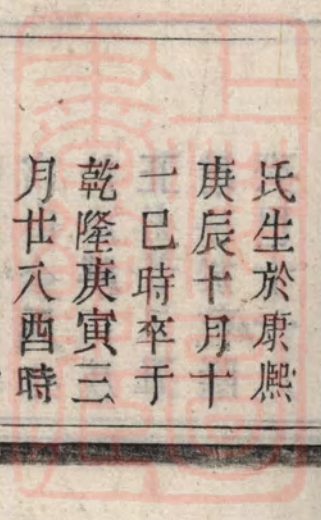 氏生於康熈
庚辰十月十
一巳時卒于
乾隆庚寅三
月廿八酉時